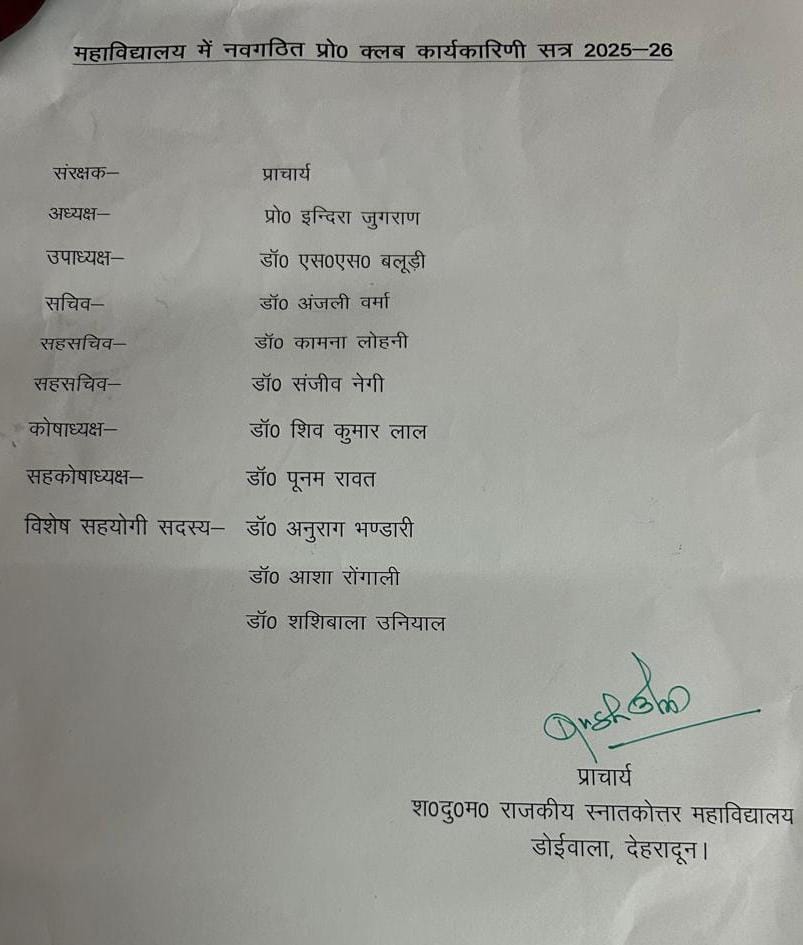 महाविद्यालय में नवगठित प्रो0 क्लब कार्यकारिणी सत्र 2025–26
संरक्षक– प्राचार्य
अध्यक्ष– प्रो0 इन्दिरा जुगराण
उपाध्यक्ष– डॉ0 एस0एस0 बलूड़ी
सचिव– डॉ0 अंजली वर्मा
सहसचिव– डॉ0 कामना लोहनी
सहसचिव– डॉ0 संजीव नेगी
कोषाध्यक्ष– डॉ0 शिव कुमार लाल
सहकोषाध्यक्ष– डॉ0 पूनम रावत
विशेष सहयोगी सदस्य– डॉ0 अनुराग भण्डारी
डॉ0 आशा रोंगाली
डॉ0 शशिबाला उनियाल
प्राचार्य
श0दु0म0 राजकीय स्नातकोत्तर महाविद्यालय
डोईवाला, देहरादून।